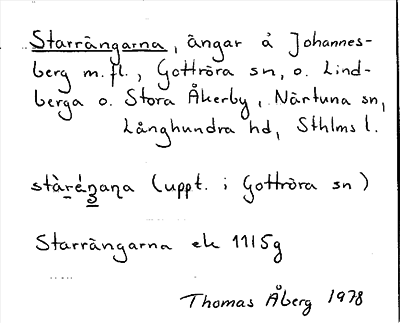 Starrängarna, ängar å Johannes-
berg m.fl., Gottröra sn, o. Lind-
berga o. Stora Åkerby, Närtuna sn,
Långhundra hd, Sthlms l.
(uppt. i Gottröra sn)
Starrängarna ek 11I5g
Thomas Åberg 1978